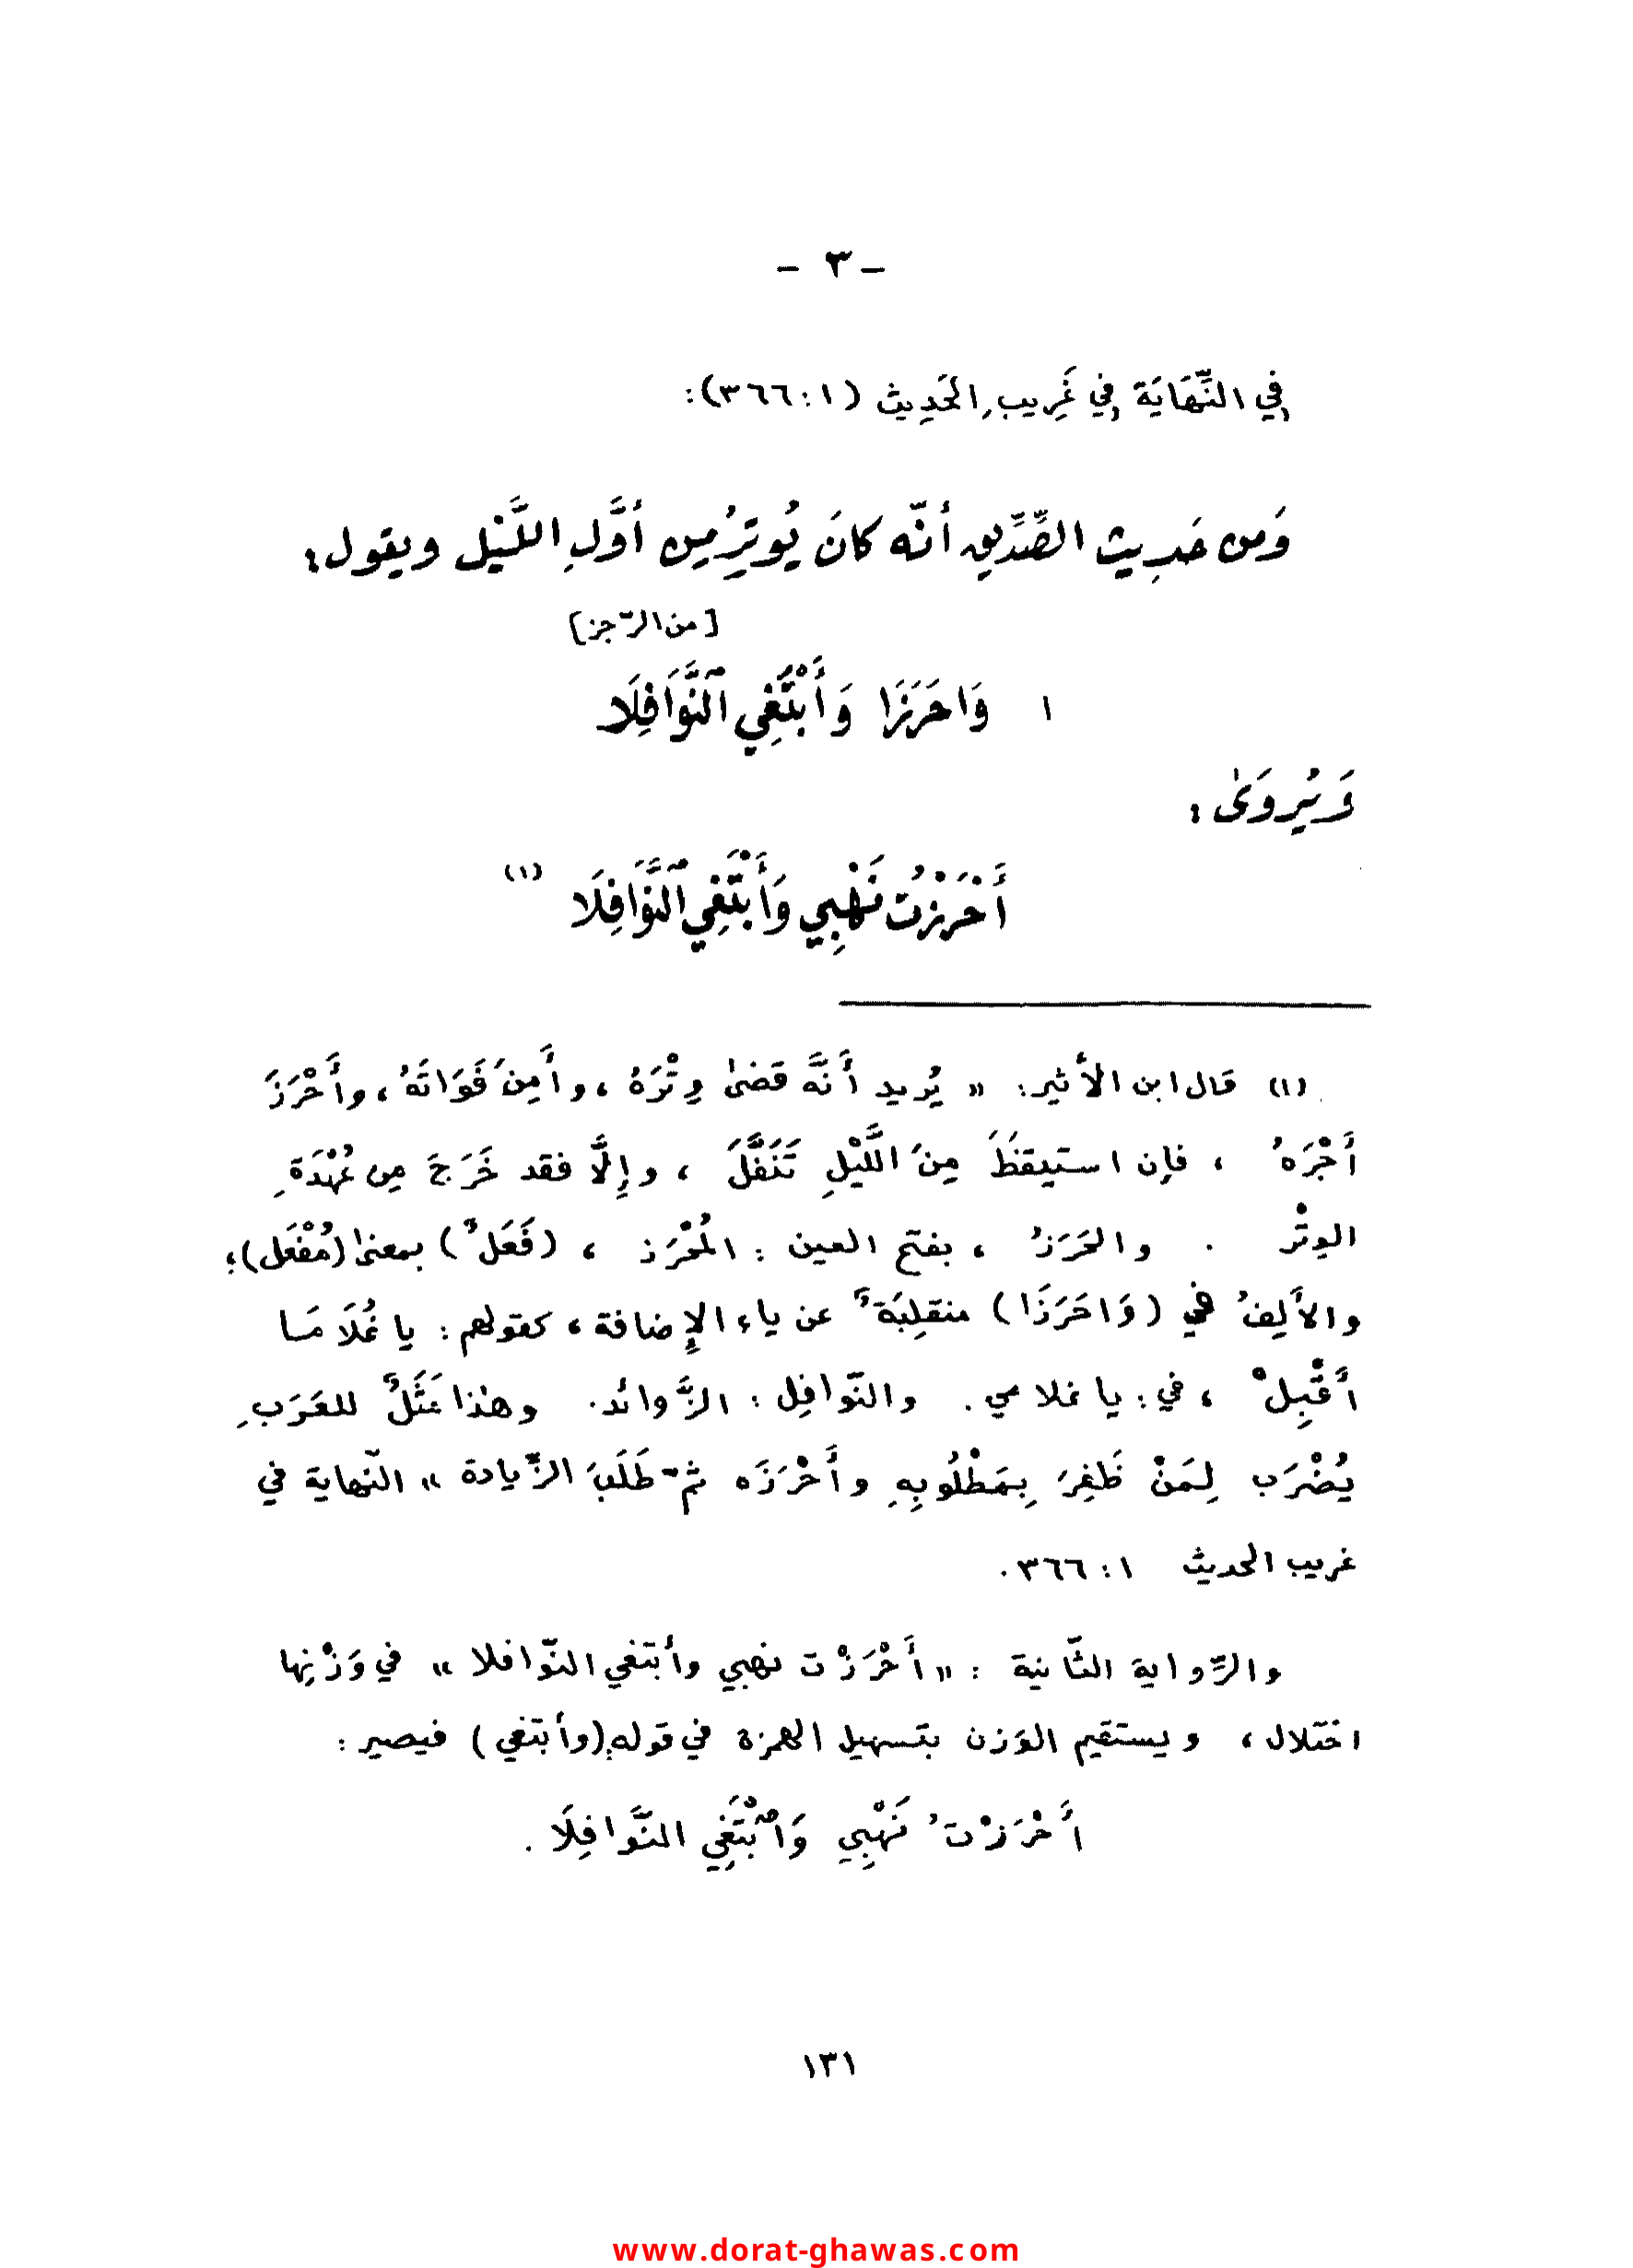 - ٣ -
فِي النِّهَايَة فِي غَرِيبِ الحَدِيث (١: ٣٦٦):
وَمن حَدِيث الصِّدِّيق أنّه كانَ يُوتِرُ مِن أوَّلِ اللَّيْل ويقول:
[من الرّجز]
١ وَاحَرَزَا وَأَبْتَغِي ٱلنَّوَافِلَا
وَيُروَىٰ:
أَحْرَزْتُ نَهْبِي وَأَبْتَغِي ٱلنَّوَافِلَا (١)
(١) قال ابن الأثير: « يُريد أَنَّه قضىٰ وِتْرَهُ ، وأَمِنَ فَوَاتَهُ ، وأَحْرَزَ
أَجْرَهُ ، فإن استيقظَ مِنَ اللَّيْلِ تَنَفَّلَ ، وإِلَّا فقد خَرَجَ مِن عُهْدَةِ
الوِتْر . والحَرَزُ ، بفتح العين : المُحْرَز ، (فَعَلٌ) بمعنىٰ (مُفْعَل) ؛
والأَلِفُ في (وَاحَرَزَا) منقلِبَةٌ عن ياء الإِضافة ، كقولهم : يا غُلَامَا
أَقْبِلْ ، في : يا غلامي . والنّوافِل : الزَّوائد . وهٰذا مَثَلٌ للعَرَبِ
يُضْرَب لِمَنْ ظَفِرَ بِمَطْلُوبِهِ وأَحْرَزَه ثمّ طَلَبَ الزِّيادة » النّهاية في
غريب الحديث ١ : ٣٦٦ .
والرِّواية الثّانية : « أَحْرَزْت نهبي وأبتغي النّوافلا » في وَزْنِها
اختلال ، ويستقيم الوَزن بتسهيل الهمزة في قولهِ (وأبتغي) فيصير :
أَحْرَزْتُ نَهْبِي وَٱبْتَغِي النَّوافِلَا .
١٣١
www.dorat-ghawas.com